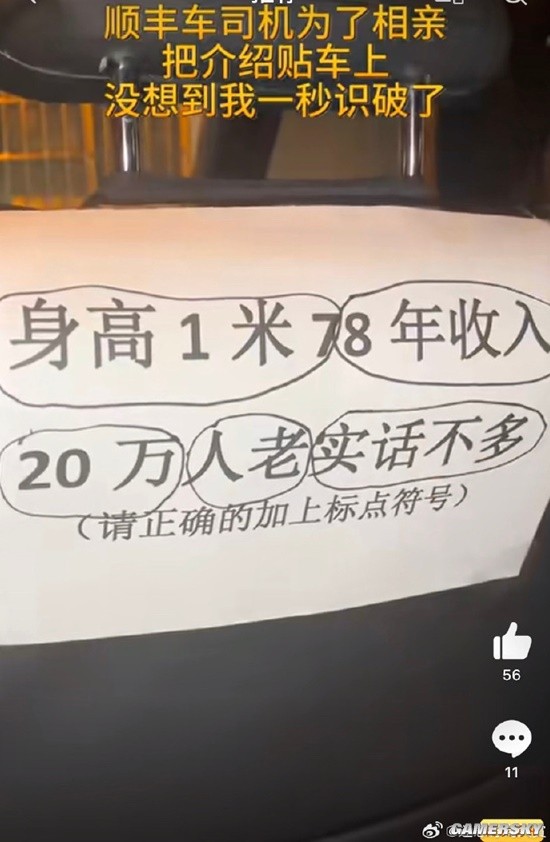 顺丰车司机为了相亲
把介绍贴车上
没想到我一秒识破了
身高1米78年收入
20万人老实话不多
（请正确的加上标点符号）
56
11
GAMERSKY